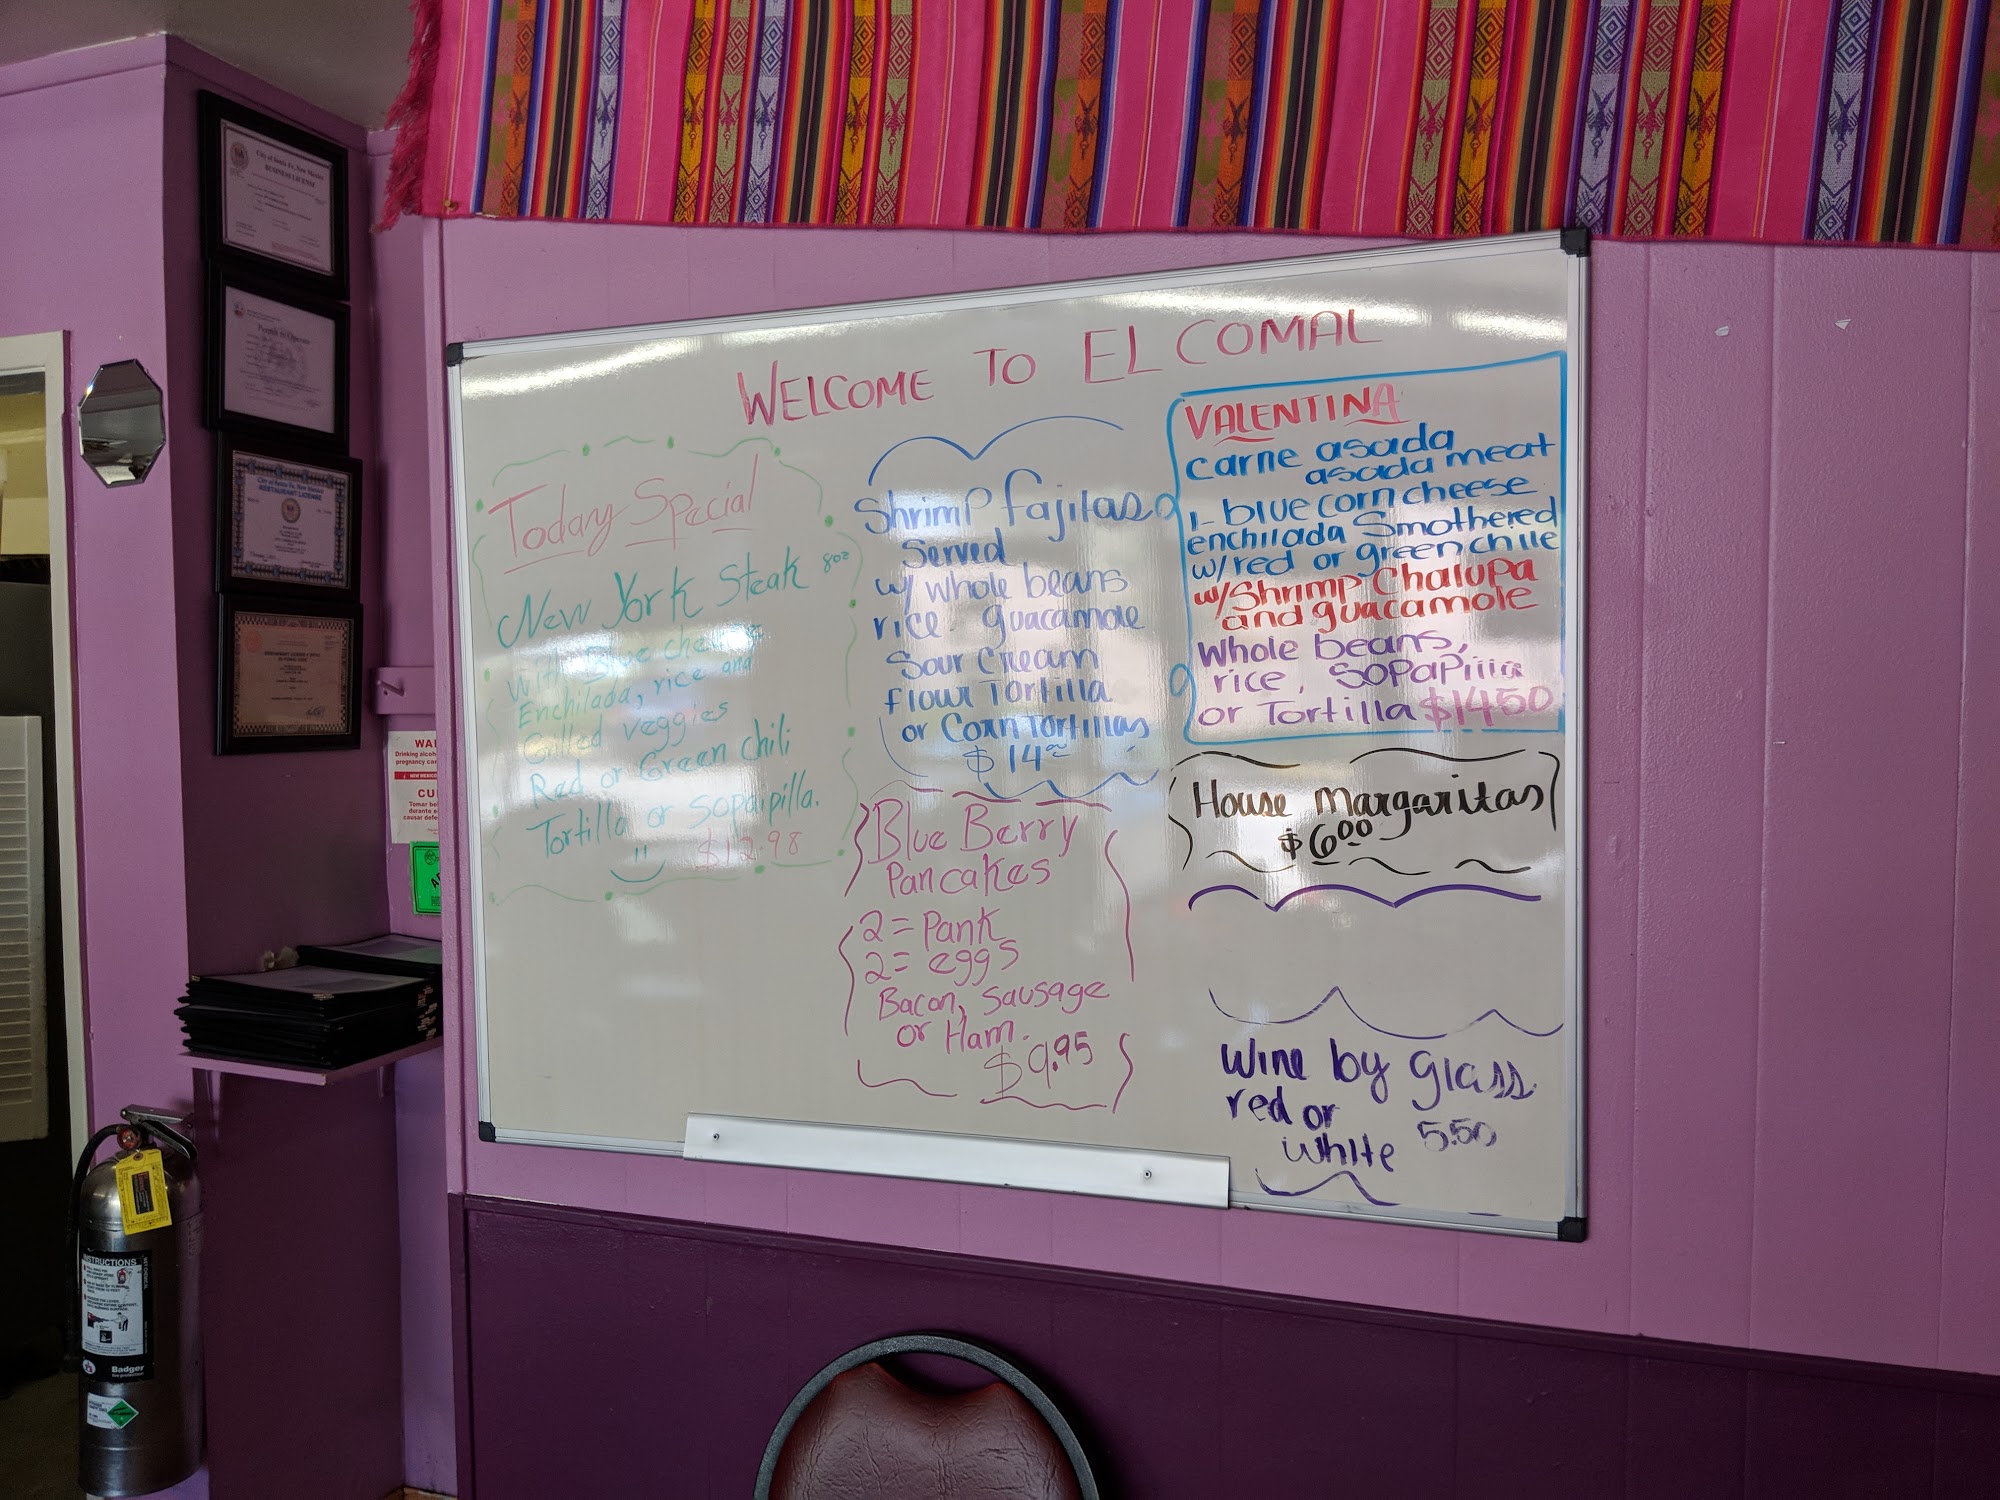 WELCOME TO EL COMAL
Today Special
New York Steak 8oz
With Blue cheese
Enchilada, rice and
Grilled veggies
Red or Green Chili
Tortilla or Sopaipilla.
$12.98
Shrimp fajitas
Served
w/ whole beans
rice. guacamole
Sour cream
flour Tortilla
or Corn Tortillas
$14.00
Blue Berry
Pancakes
2 = Pank
2 = eggs
Bacon, Sausage
or Ham.
$9.95
VALENTINA
Carne asada
asada meat
1- blue corn cheese
enchilada Smothered
w/red or green chile
w/Shrimp Chalupa
and guacamole
Whole beans,
rice, SoPaPilla
or Tortilla $14.50
House Margaritas
$6.00
Wine by Glass
red or
white 5.50
City of Santa Fe, New Mexico
BUSINESS LICENSE
Permit to Operate
City of Santa Fe, New Mexico
RESTAURANT LICENSE
WAR
Drinking alcoh
pregnancy can
CU
Tomar beb
durante e
causar defe
INSTRUCTIONS
Badger